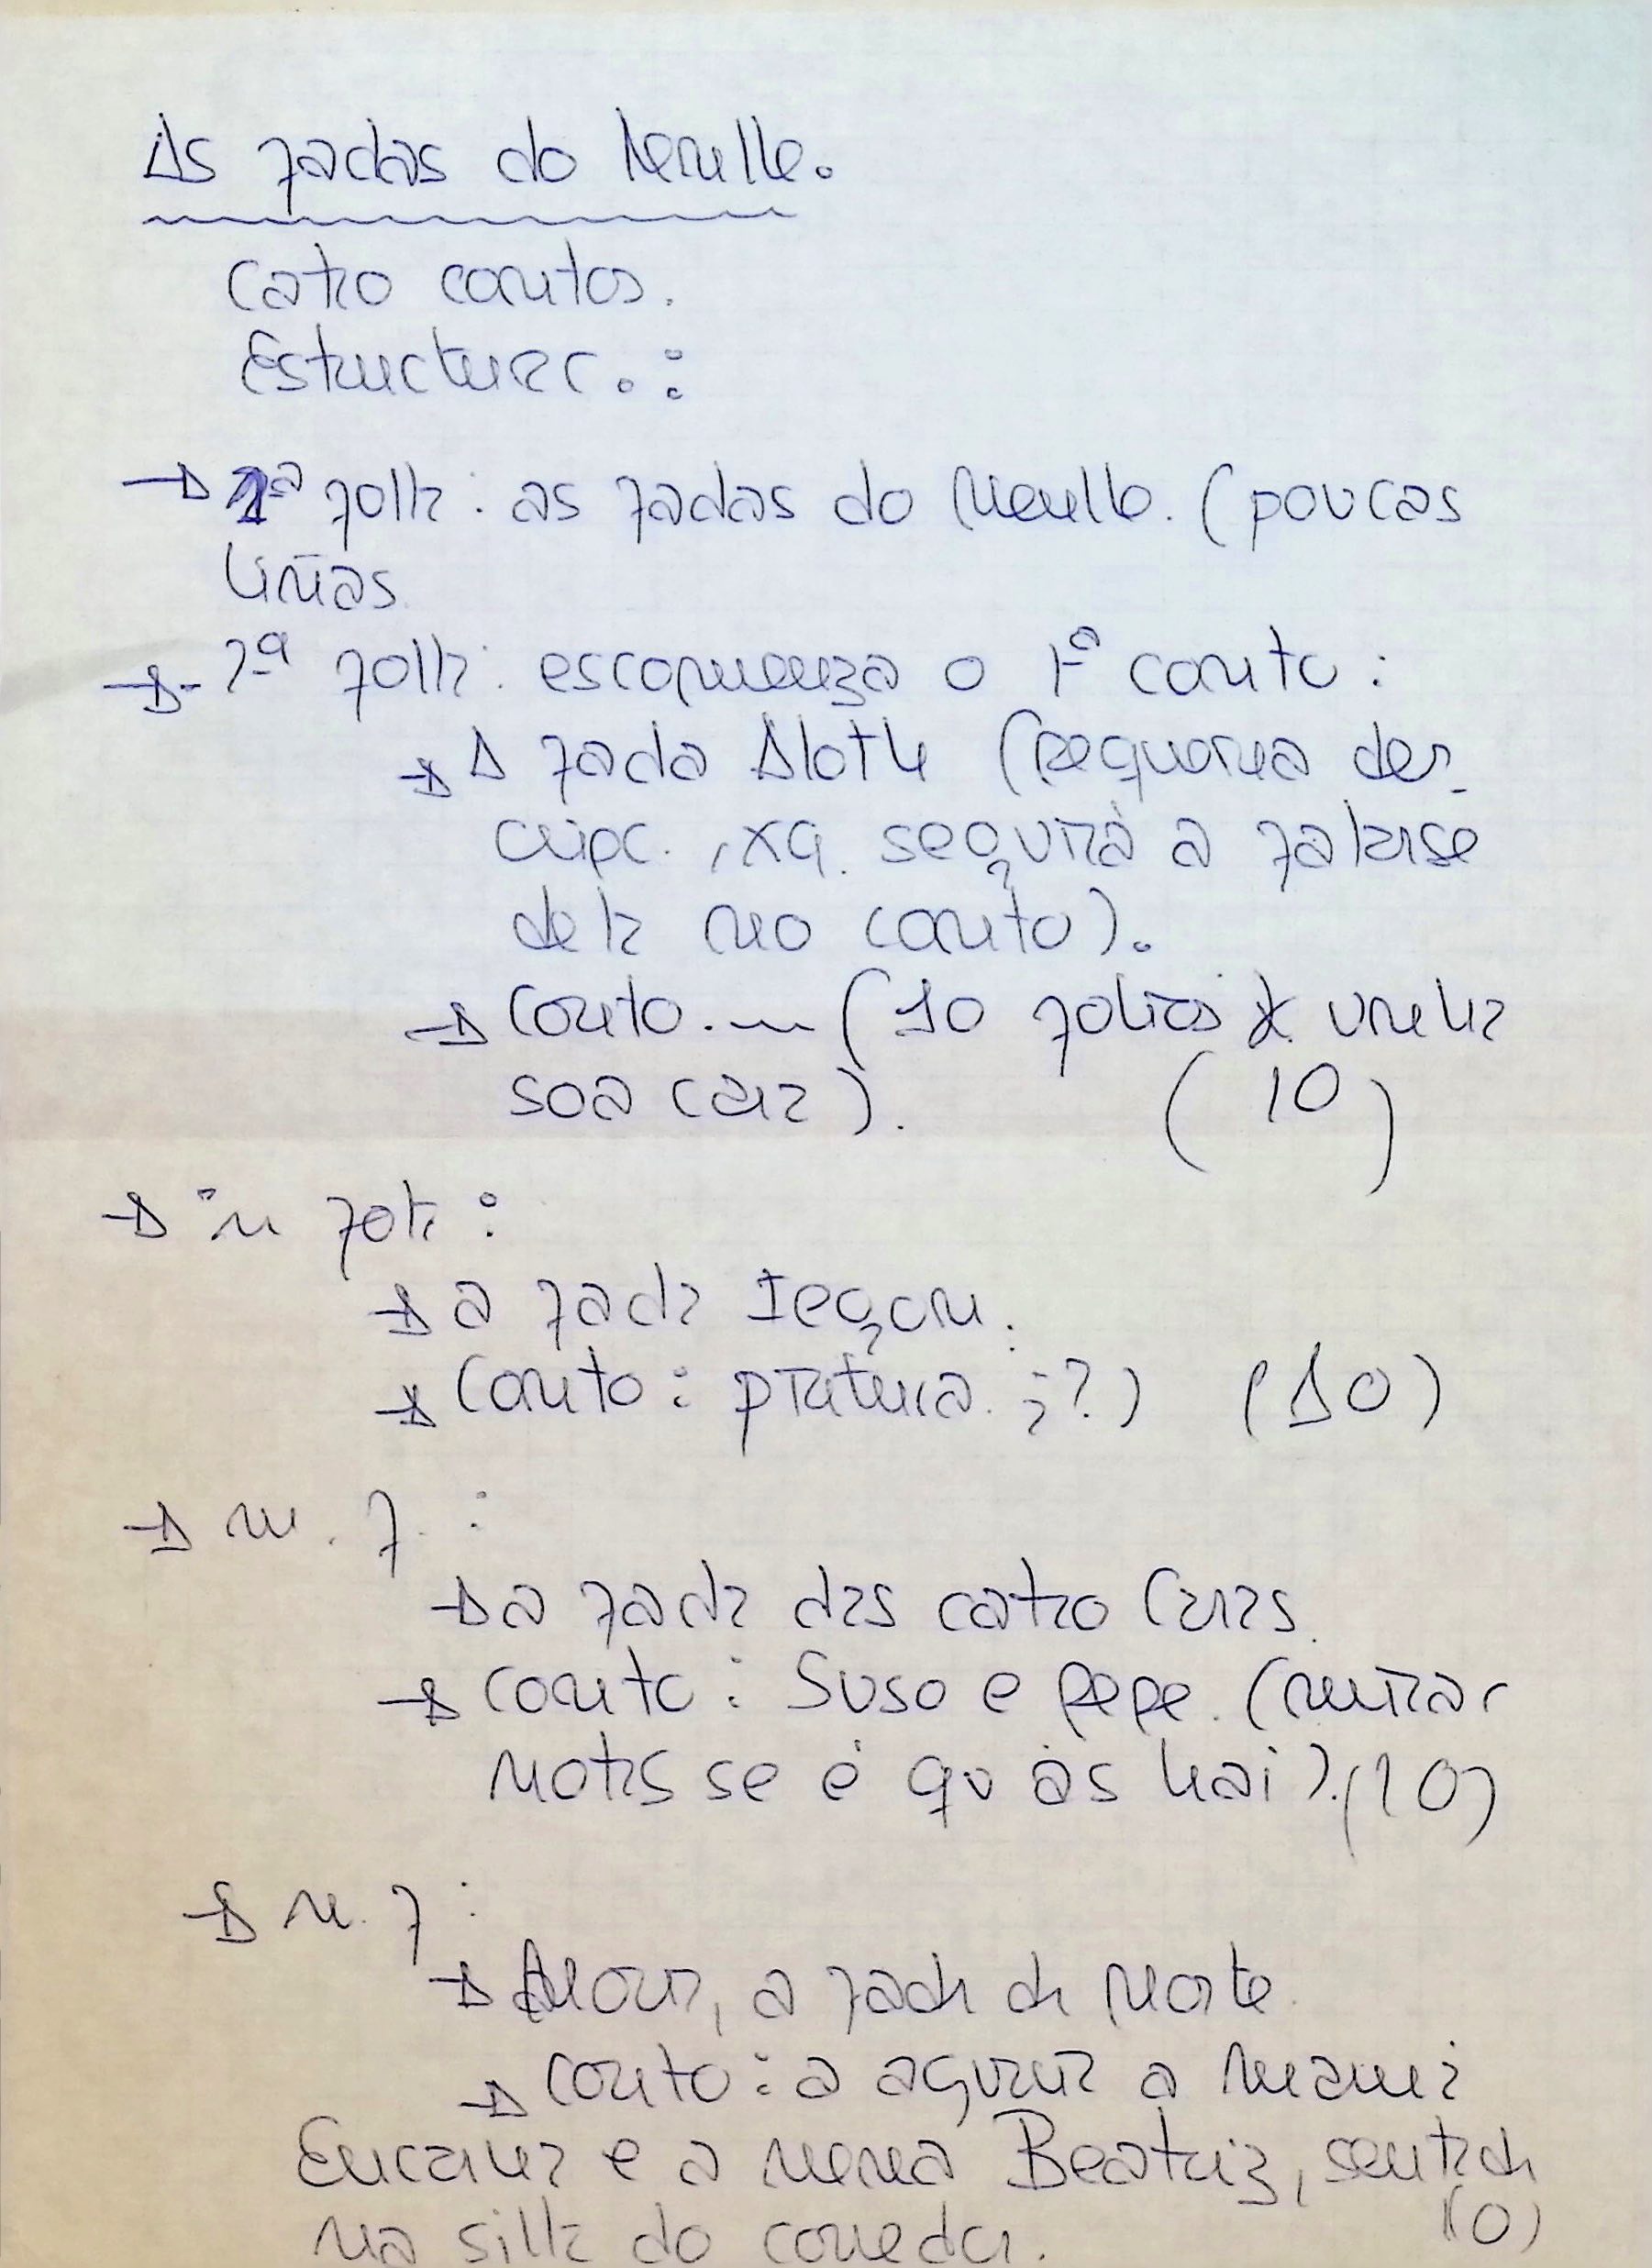 As fadas do Menlle.
Catro contos.
Estructurac.:
→ 1ª folla: as fadas do Menlle. (poucas
liñas
→ 2ª folla: escomenza o 1º conto:
→ A fada (pequena des-
cripc., xa seguirá a falarse
dela no conto).
→ Conto. (10 folios x unha
soa cara). (10)
→ in fola:
→ a fada Iegom.
→ Conto: pintura ¿?) (10)
→ n. f. :
→ a fada das catro caras.
→ conto: Suso e Pepe. (mirar
notas se é qu as hai). (10)
→ n. f :
→ a fada da Morte.
→ conto: a a mami
Encarna e a nena Beatriz, sentada
na silla do comedor. (10)